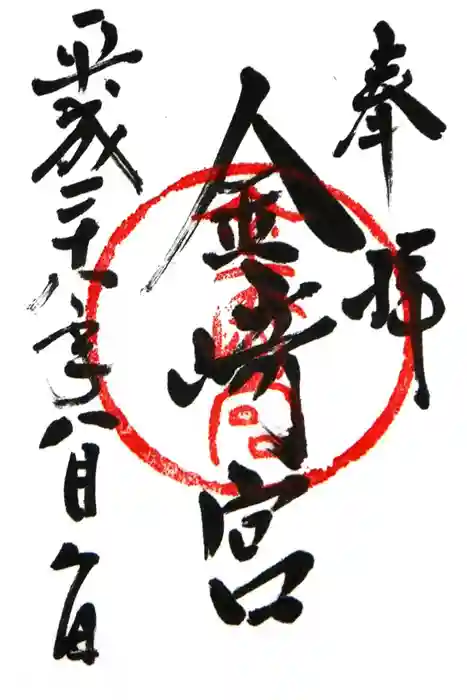 奉拝
金崎宮
平成二十八年八月八日